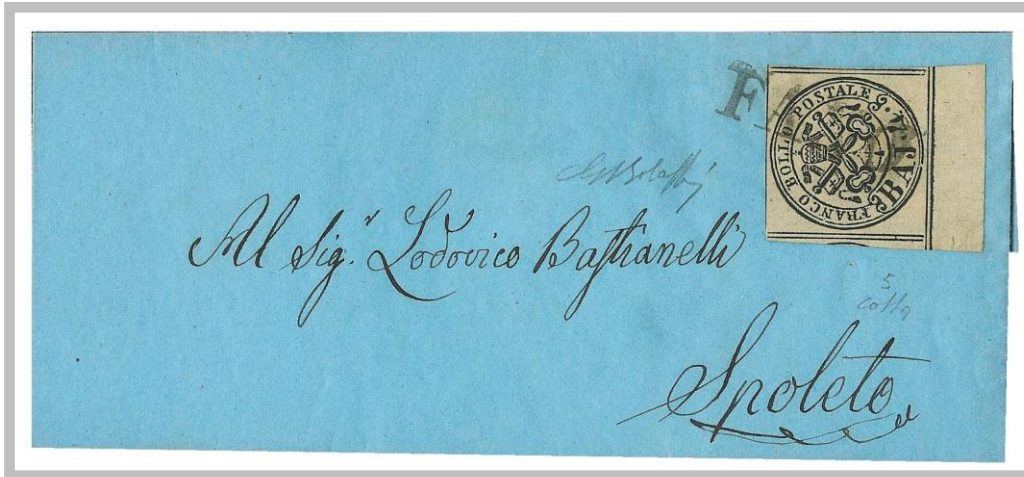 FRANCO BOLLO POSTALE
BAJ. 4.
Al Sig.r Lodovico Bastianelli
5
Spoleto